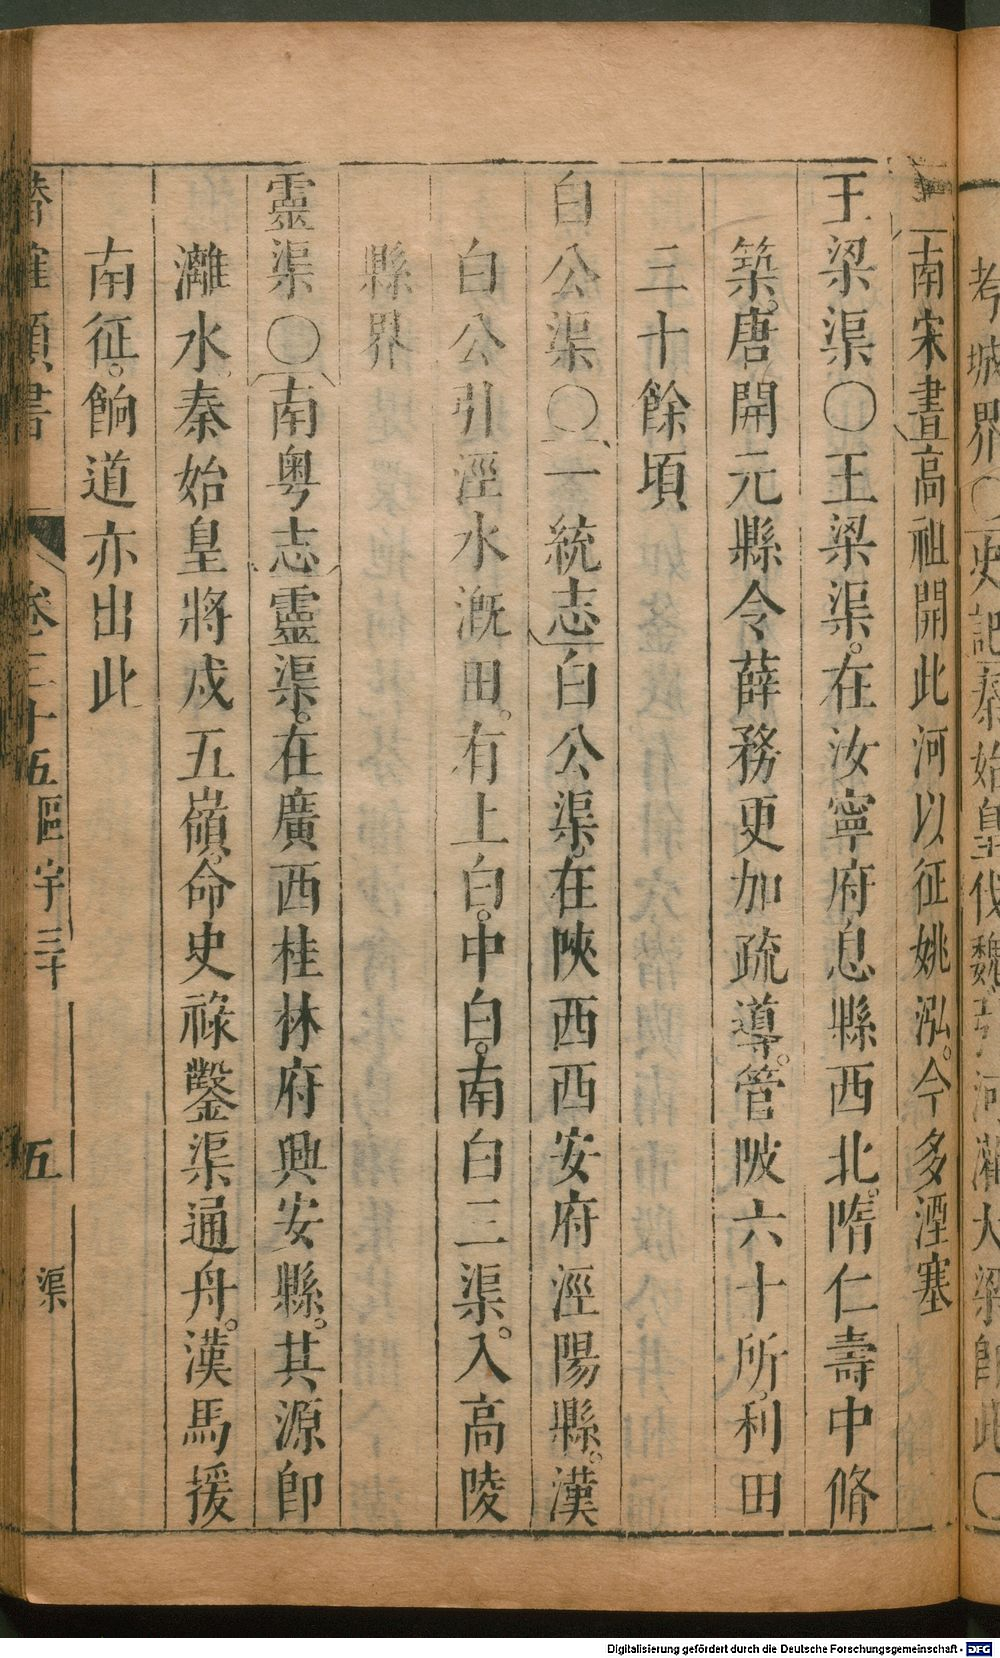 考城界○史記秦始皇伐魏引河灌大梁卽此○
南宋書高祖開此河以征姚泓。今多湮塞
王梁渠○王梁渠。在汝寧府息縣西北。隋仁壽中脩
築。唐開元縣令薛務更加疏導。管陂六十所。利田
三十餘頃
白公渠○一統志白公渠。在陝西西安府涇陽縣。漢
白公引涇水漑田。有上白。中白。南白三渠。入高陵
縣界
靈渠○南粤志靈渠。在廣西桂林府興安縣。其源卽
灕水。秦始皇將戍五嶺。命史祿鑿渠通舟。漢馬援
南征。餉道亦出此
潛確類書 卷三十五 區宇三十 五 渠
Digitalisierung gefördert durch die Deutsche Forschungsgemeinschaft - DFG